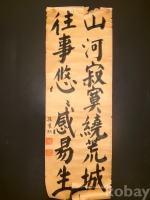 山河寂寞繞荒城
往事悠悠感易生
kobay